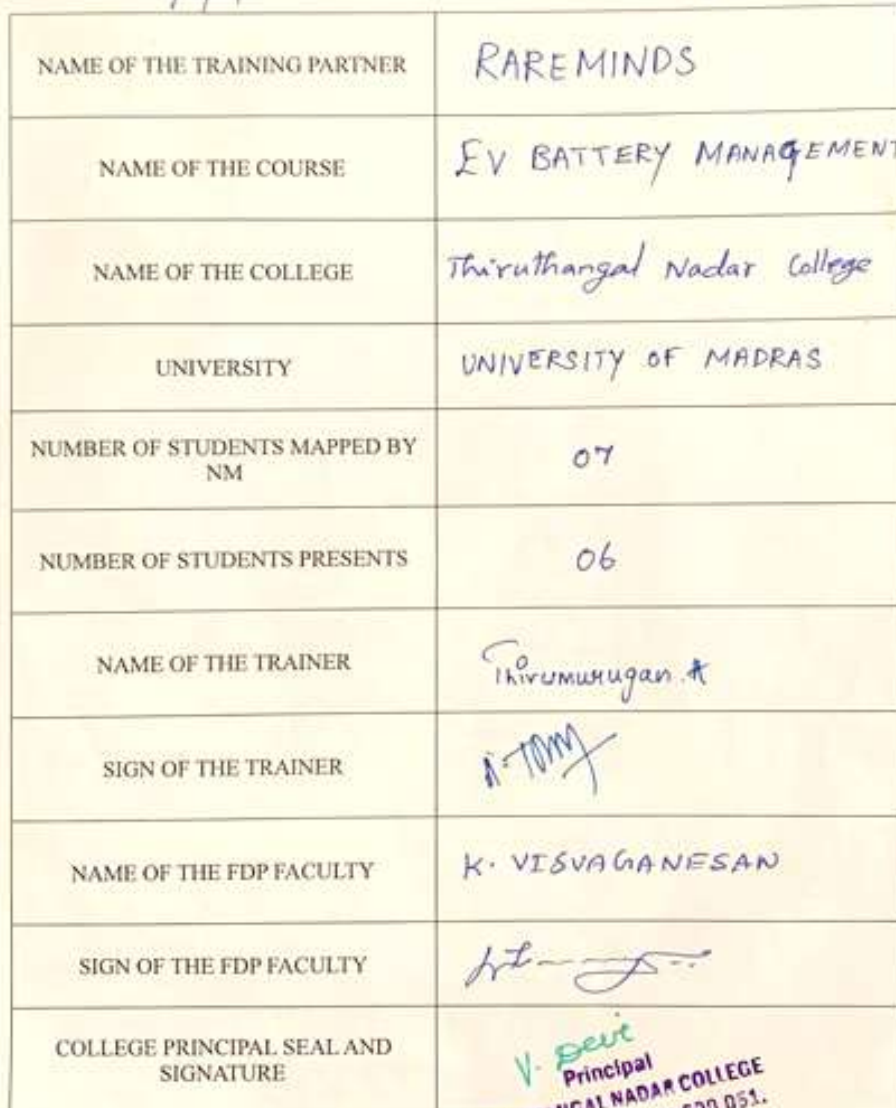 NAME OF THE TRAINING PARTNER
RAREMINDS
NAME OF THE COURSE
EV BATTERY MANAGEMENT
NAME OF THE COLLEGE
Thiruthangal Nadar College
UNIVERSITY
UNIVERSITY OF MADRAS
NUMBER OF STUDENTS MAPPED BY
NM
07
NUMBER OF STUDENTS PRESENTS
06
NAME OF THE TRAINER
Thirumurugan.A
SIGN OF THE TRAINER
NAME OF THE FDP FACULTY
K. VISVAGANESAN
SIGN OF THE FDP FACULTY
COLLEGE PRINCIPAL SEAL AND
SIGNATURE
V. Devi
Principal
NADAR COLLEGE
051.